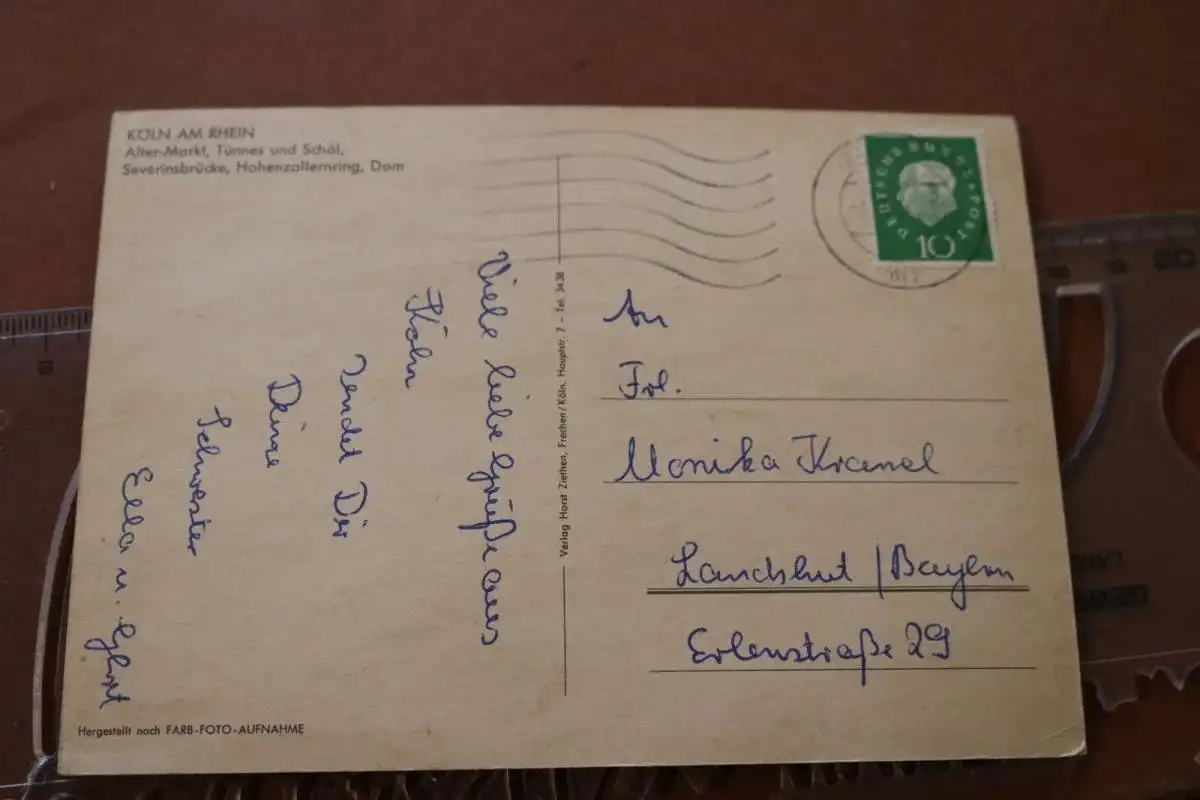 KÖLN AM RHEIN
Alter-Markt, Tünnes und Schäl,
Severinsbrücke, Hohenzollernring, Dom
DEUTSCHE BUNDESPOST
10
Viele liebe Grüße aus
Köln
sendet Dir
Deine
Schwester
Ella u.
Verlag Horst Ziethen, Frechen/Köln, Hauptstr. 7 – Tel. 3438
An
Frl.
Monika Kranel
Landshut / Bayern
Erlenstraße 29
Hergestellt nach FARB-FOTO-AUFNAHME